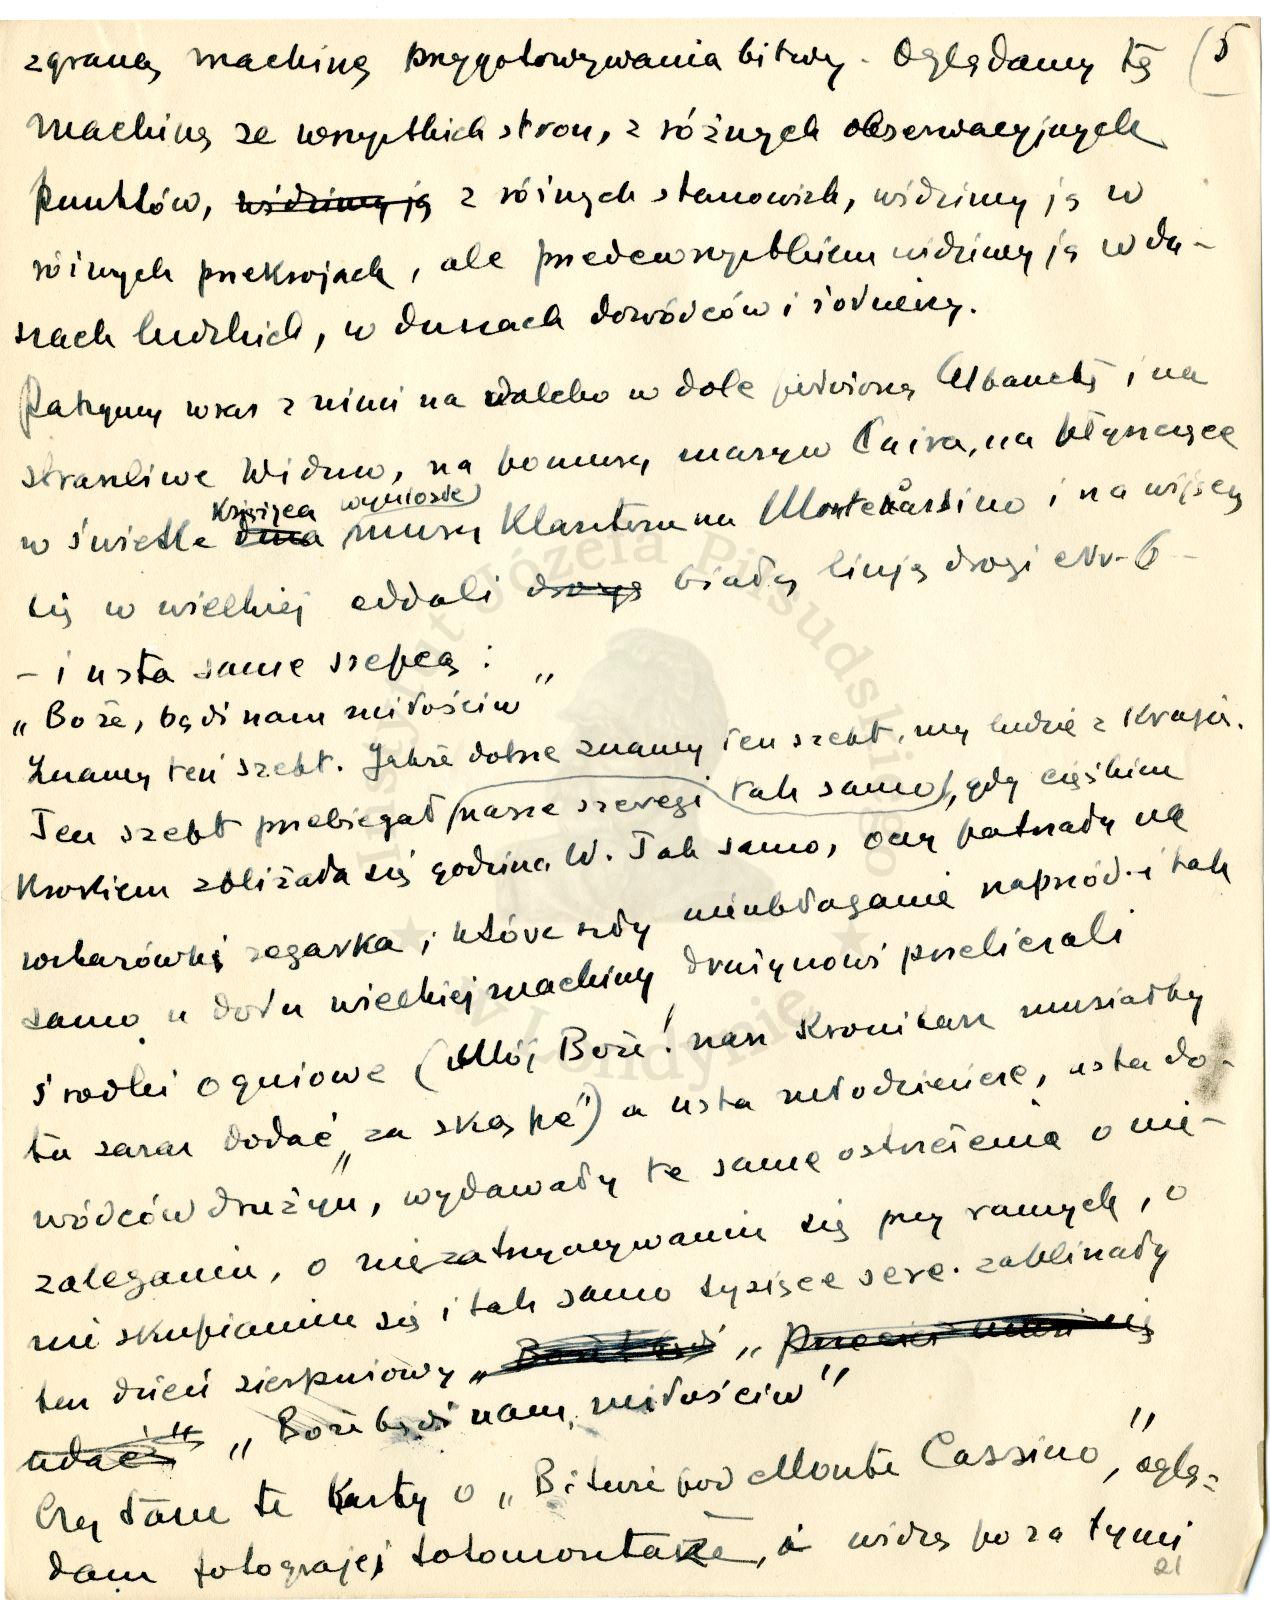 zgraną machiną przygotowywania bitwy. Oglądamy tę (5
machinę ze wszystkich stron, z różnych obserwacyjnych
punktów, widzimy ją z różnych stanowisk, widzimy ją w
różnych przekrojach, ale przedewszystkiem widzimy ją w du-
szach ludzkich, w duszach dowódców i żołnierzy.
Patrzymy wraz z nimi na daleko w dole położoną Albanetę i na
straszliwe Widmo, na ponury masyw Cairo, na błyszczące
Księżyca wyniosłe
w świetle dnia mury Klasztoru na Monte Cassino i na wijącą
się w wielkiej oddali drogę białą linję drogi Nr. 6 -
- i usta same szepcą:
„Boże, bądź nam miłościw"
Znamy ten szept. Jakże dobrze znamy ten szept, my ludzie z Kraju.
Ten szept przebiegał nasze szeregi tak samo, gdy ciężkim
Krokiem zbliżała się godzina W. Tak samo, oczy patrzały na
wskazówki zegarka, które szły nieubłaganie naprzód i tak
samo u dołu wielkiej machiny drużynowi przeliczali
środki ogniowe („Mój Boże! nasz Kronikarz musiałby
tu zaraz dodać „za skąpe") a usta młodzieńcze, usta do-
wódców drużyn, wydawały te same ostrzeżenia o nie-
zaleganiu, o niezatrzymywaniu się przy rannych, o
nie skupianiu się i tak samo tysiące serc zaklinały
ten dzień sierpniowy „ „
udać" „Boże bądź nam miłościw"
Czytam te Karty o „Bitwie pod Monte Cassino", oglą-
dam fotografje, fotomontaże, i widzę poza tymi
21
Instytut Józefa Piłsudskiego
w Londynie